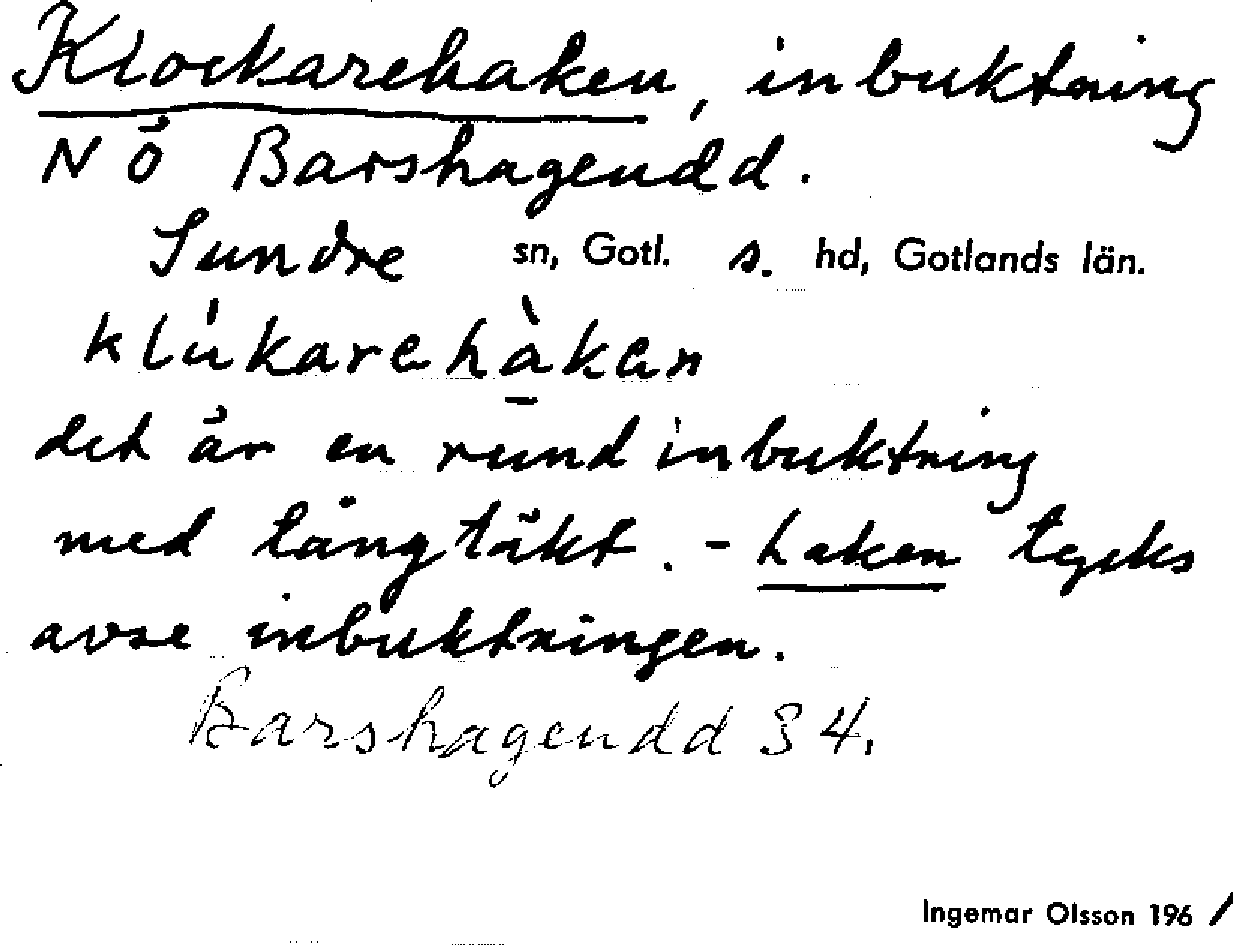 Klockarehaken, inbuktning
N Ö Barshagendd.
Sundre sn, Gotl. s. hd, Gotlands län.
klúkarehàkan
det är en rund inbuktning
med tångtäkt. - haken tycks
avse inbuktningen.
Barshagendd 34.
Ingemar Olsson 196 /